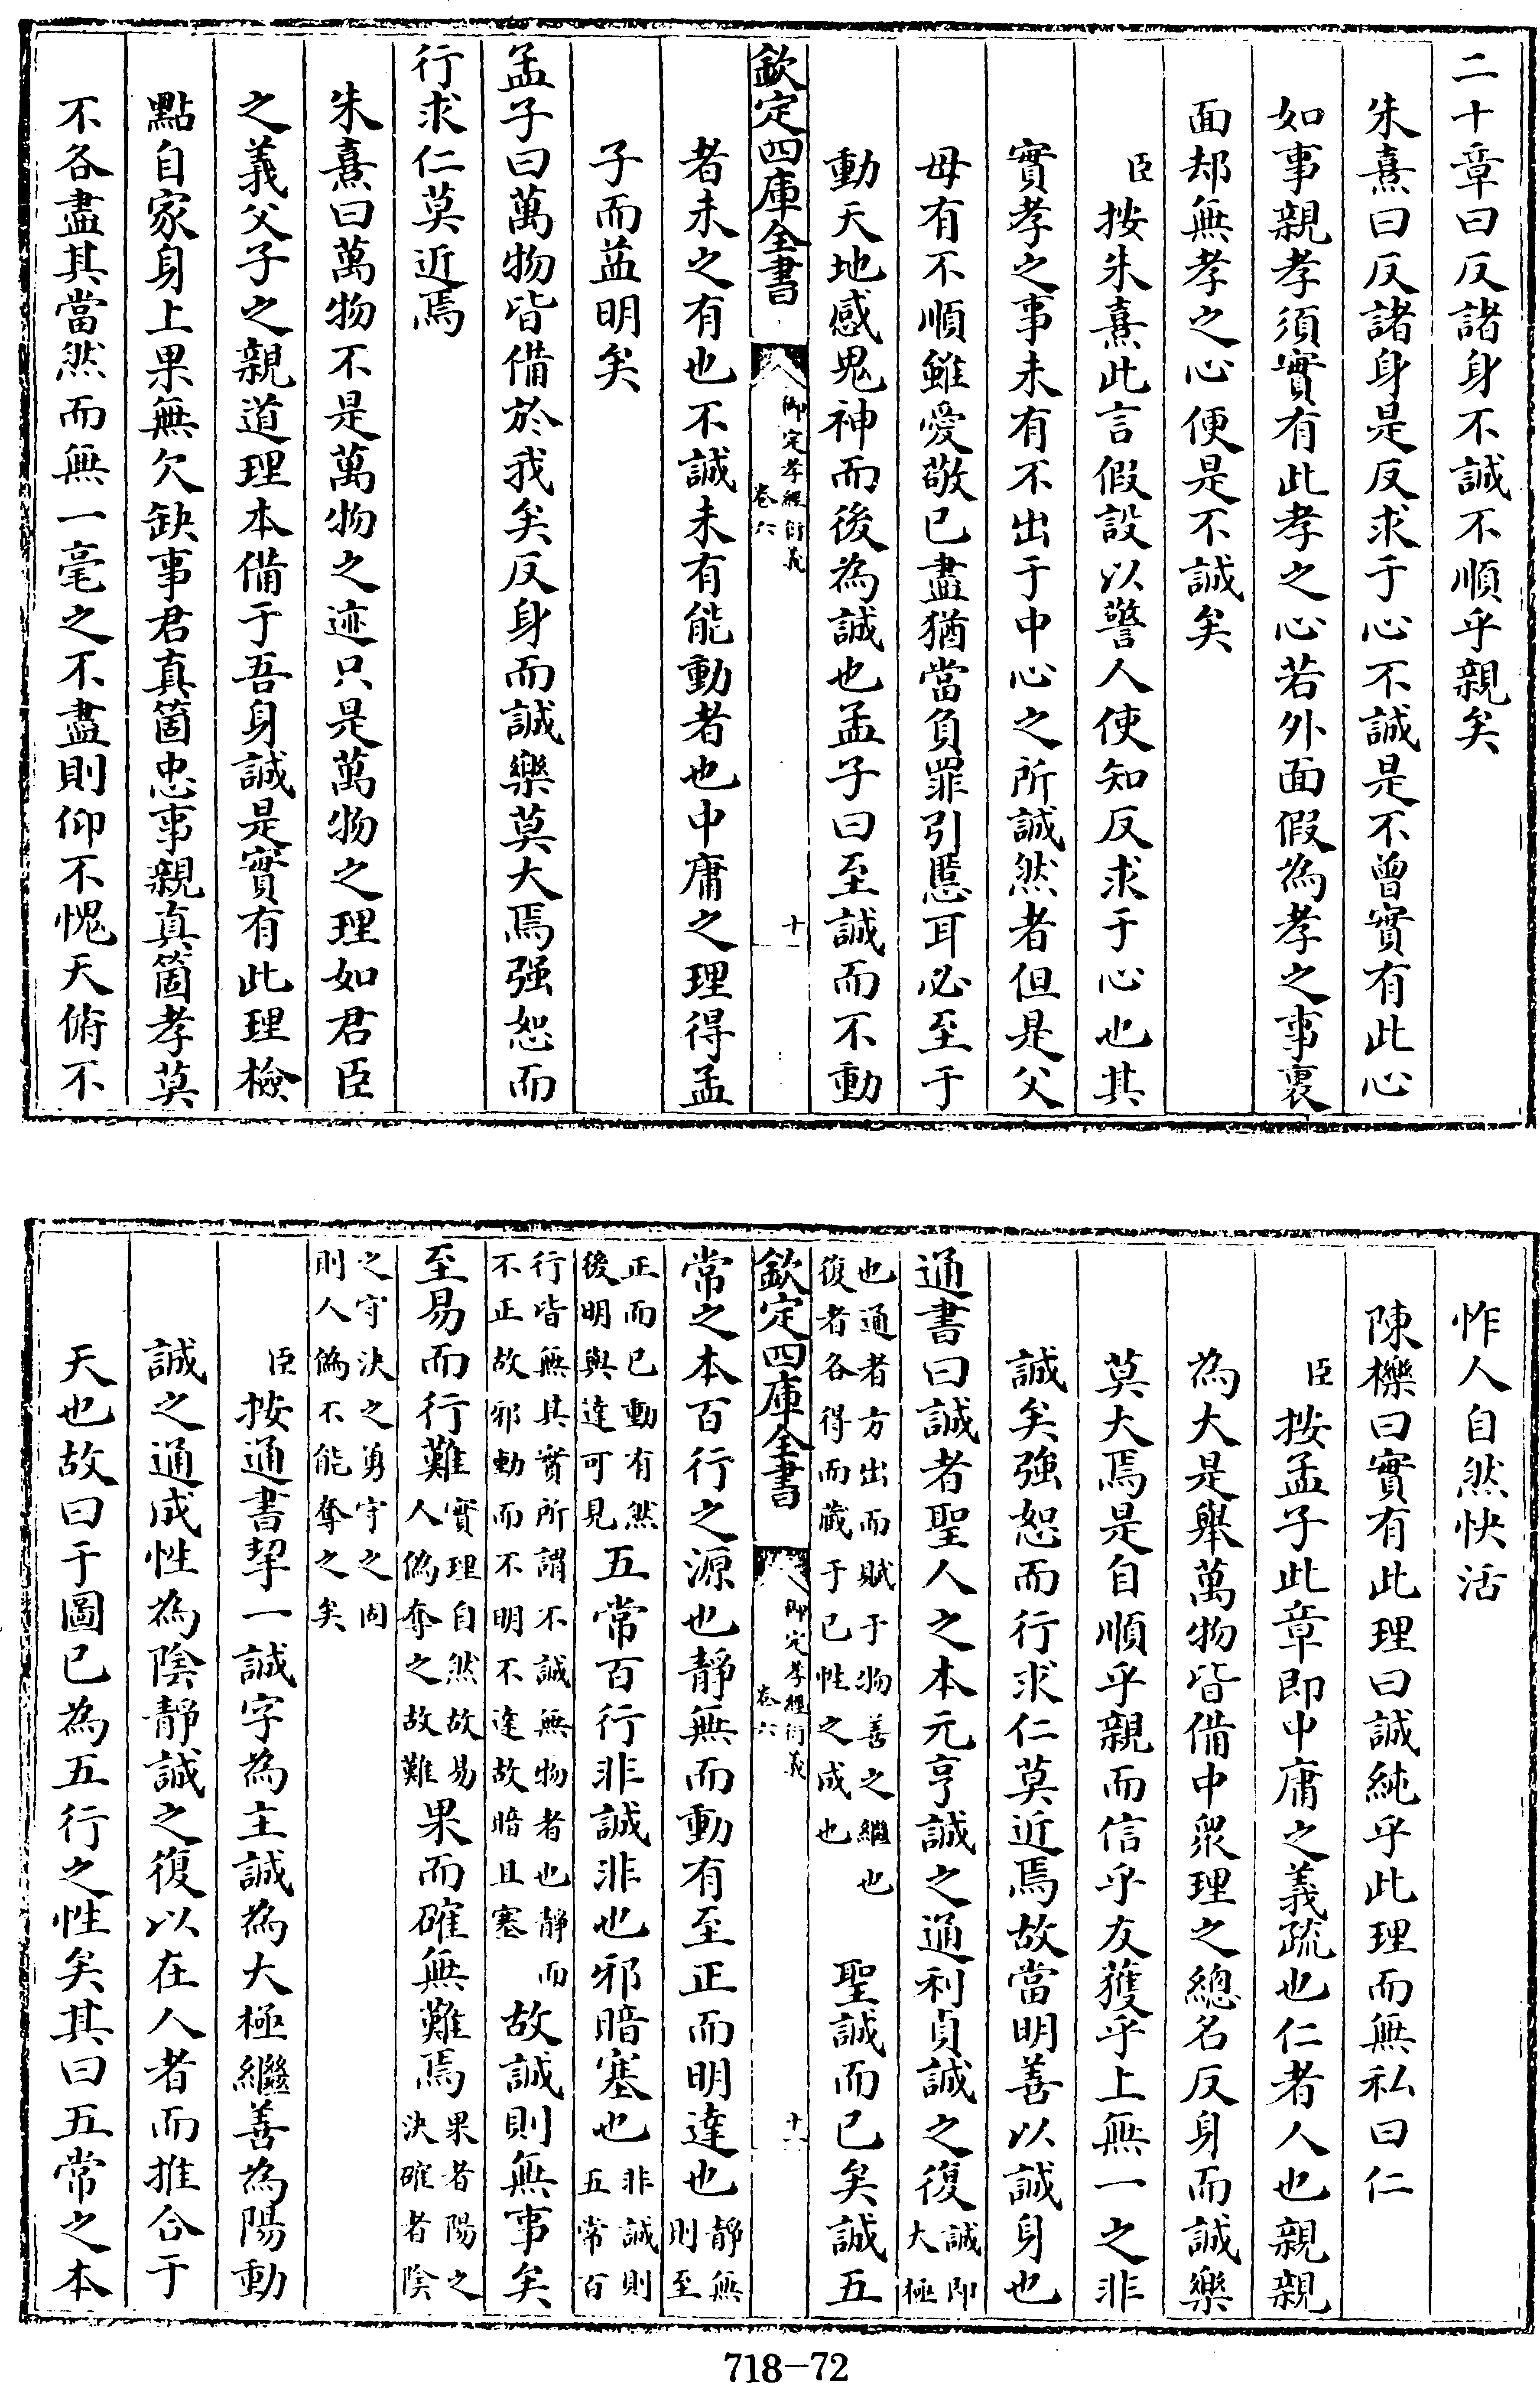 二十章曰反諸身不誠不順乎親矣
朱熹曰反諸身是反求于心不誠是不曾實有此心
如事親孝須實有此孝之心若外面假為孝之事裏
面却無孝之心便是不誠矣
臣按朱熹此言假設以警人使知反求于心也其
實孝之事未有不出于中心之所誠然者但是父
母有不順雖愛敬已盡猶當負罪引慝耳必至于
動天地感鬼神而後為誠也孟子曰至誠而不動
欽定四庫全書
御定孝經衍義
卷六
十一
者未之有也不誠未有能動者也中庸之理得孟
子而益明矣
孟子曰萬物皆備於我矣反身而誠樂莫大焉强恕而
行求仁莫近焉
朱熹曰萬物不是萬物之迹只是萬物之理如君臣
之義父子之親道理本備于吾身誠是實有此理檢
點自家身上果無欠缺事君真箇忠事親真箇孝莫
不各盡其當然而無一毫之不盡則仰不愧天俯不
怍人自然快活
陳櫟曰實有此理曰誠純乎此理而無私曰仁
臣按孟子此章即中庸之義疏也仁者人也親親
為大是舉萬物皆備中衆理之總名反身而誠樂
莫大焉是自順乎親而信乎友獲乎上無一之非
誠矣強恕而行求仁莫近焉故當明善以誠身也
通書曰誠者聖人之本元亨誠之通利貞誠之復誠即
大極
也通者方出而賦于物善之繼也
復者各得而藏于已性之成也
聖誠而已矣誠五
欽定四庫全書
御定孝經衍義
卷六
十一
常之本百行之源也靜無而動有至正而明達也靜無
則至
正而已動有然
後明與達可見五常百行非誠非也邪暗塞也非誠則
五常百
行皆無其實所謂不誠無物者也静而
不正故邪動而不明不達故暗且塞故誠則無事矣
至易而行難實理自然故易
人偽奪之故難果而確無難焉果者陽之
決確者陰
之守決之勇守之固
則人偽不能奪之矣
臣按通書挈一誠字為主誠為大極繼善為陽動
誠之通成性為陰靜誠之復以在人者而推合于
天也故曰于圖已為五行之性矣其曰五常之本
718-72